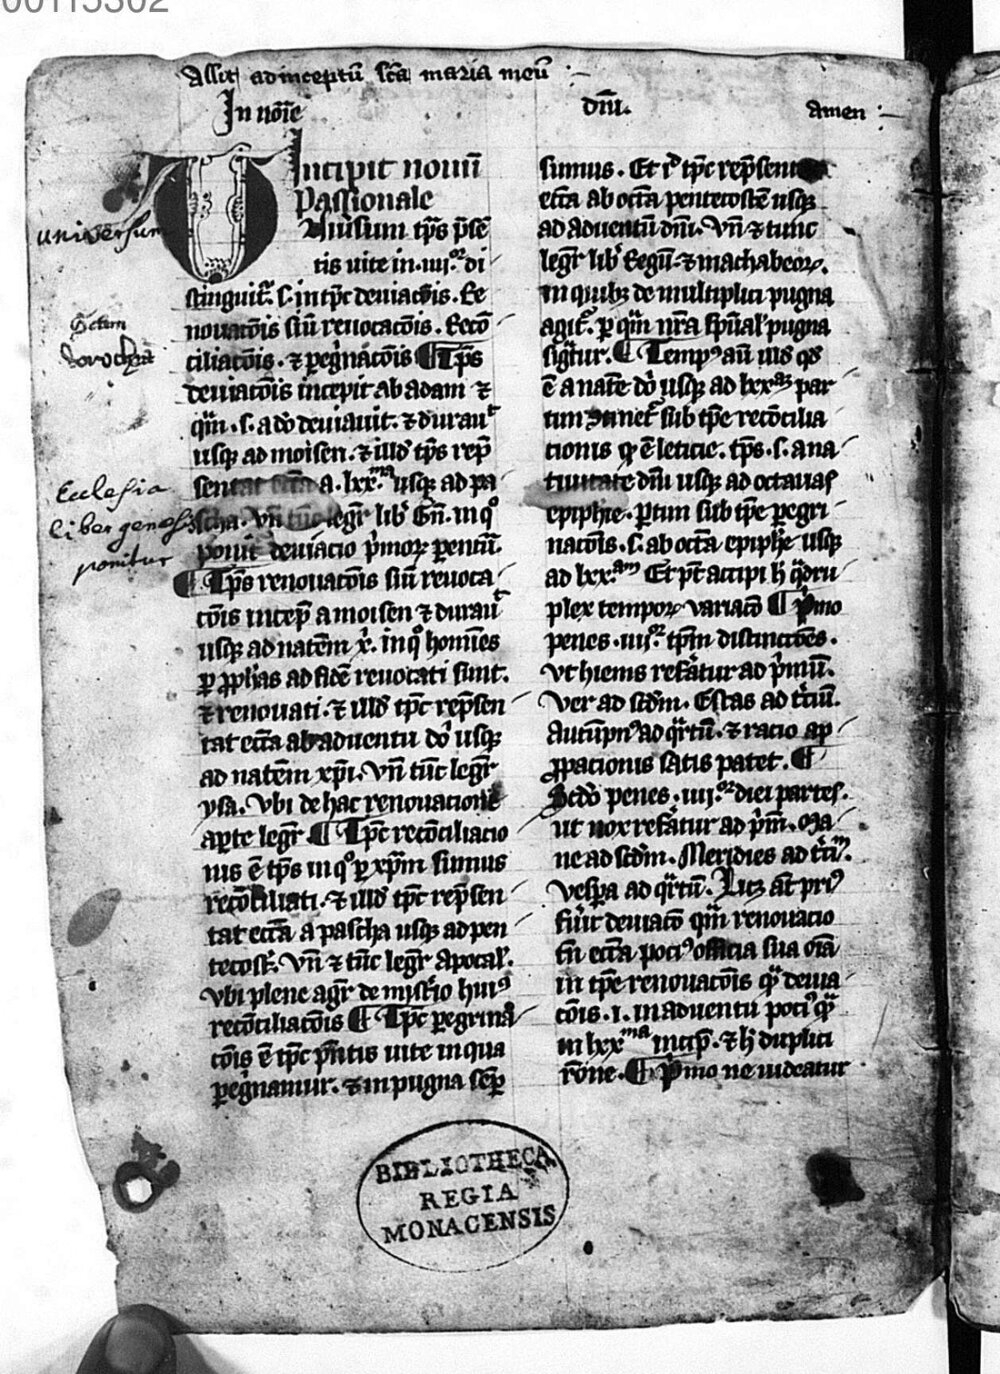 00113302
Assit ad inceptū sc̄a maria meū
In noīe dn̄i. amen
Incipit nouū
Passionale
Vniūsum tp̄s p̄sē
tis uite in .iiii.or di
stinguit̄. s. in tp̄e deuiac̄ois. Re
nouac̄ois siū reuocac̄ois. Recō
ciliac̄ois. ⁊ peg̓nac̄ois ¶ Tp̄s
deuiac̄ois incepit ab adam ⁊
qm̄. s. a dō deuiauit. ⁊ durauͭ
usq; ad moisen. ⁊ illd̓ tp̄s rep̄
sentat ecc̄a a .lxx.ma usq; ad pa
scha. vn̄ tūc legr̄ lib̓ Gn̄. in qͦ
ponit̄ deuiacio p̓moꝝ parentū.
¶ Tp̄s renouac̄ois siū reuoca
c̄ois incep̄ a moisen ⁊ durauͭ
usq; ad natēm x̄. in qͦ homīes
ꝑ ꝓph̄as ad fidē reuocati sunt.
⁊ renouati. ⁊ illd̓ tp̄e rep̄sen
tat ecc̄a ab aduentu dō usq;
ad natēm xp̄i. vn̄ tūc legr̄
ysa. vbi de hac renouacione
apte legr̄ ¶ Tp̄e recōciliacio
nis ē tp̄s in qͦ ꝑ xp̄m sumus
recōciliati. ⁊ illd̓ tp̄e rep̄sen
tat ecc̄a a pascha usq; ad pen
tecost̄. vn̄ ⁊ tūc legr̄ apocal̓.
vbi plene agr̄ de mist̓io huiꝰ
recōciliac̄ois ¶ Tp̄e peg̓na
c̄ois ē tp̄e p̄ntis uite in qua
peg̓namur. ⁊ in pugna semꝑ
sumus. Et tp̄e rep̄sent
ecc̄a ab octa pentecostē usq;
ad aduentū dn̄i. vn̄ ⁊ tunc
legr̄ lib̓ Regū ⁊ machabeoꝝ.
in quib; de multiplici pugna
agit̄. ꝑ qm̄ nr̄a sp̄ual̓ pugna
sig̓tur. ¶ Tempꝰ aū illd̓ qd̓
ē a natē dō usq; ad lxx.am par
tim 9tinet̄ sub tp̄e recōcilia
tionis q̓ ē leticie. tp̄s. s. a na
tiuitate dn̄i usq; ad octauas
epiphīe. ptim sub tp̄e pegri
nac̄ois. s. ab octa epiph̄e usq;
ad lxx.am Et pt̄ accipi h̓ q̓dru
plex tempoꝝ variac̄o ¶ P̓mo
penes .iiii.or tpm̄ distinctōes.
vt hiems refātur ad p̓mū.
Ver ad scd̄m. Estas ad t̓ciū.
Autūpnꝰ ad qr̄tū. ⁊ racio ap
ꝓpacionis satis patet. ¶
Scd̄o penes .iiii.or diei partes.
ut nox refātur ad p̓m. Ma
ne ad scd̄m. Meridies ad t̓ciū.
vespa ad qr̄tū. Licꝫ aūt priꝰ
fūit deuiac̄o qm̄ renouacio
tn̄ ecc̄a pociꝰ officia sua oīa
in tp̄e renouac̄ois q̄ deuia
c̄ois .i. in aduentu pociꝰ q̄
in lxx.ma incip̄. ⁊ h̓ duplici
rōne. ¶ P̓mo ne uideatur
universum
Ecclesia
liber genesis
ponitur
BIBLIOTHECA
REGIA
MONACENSIS